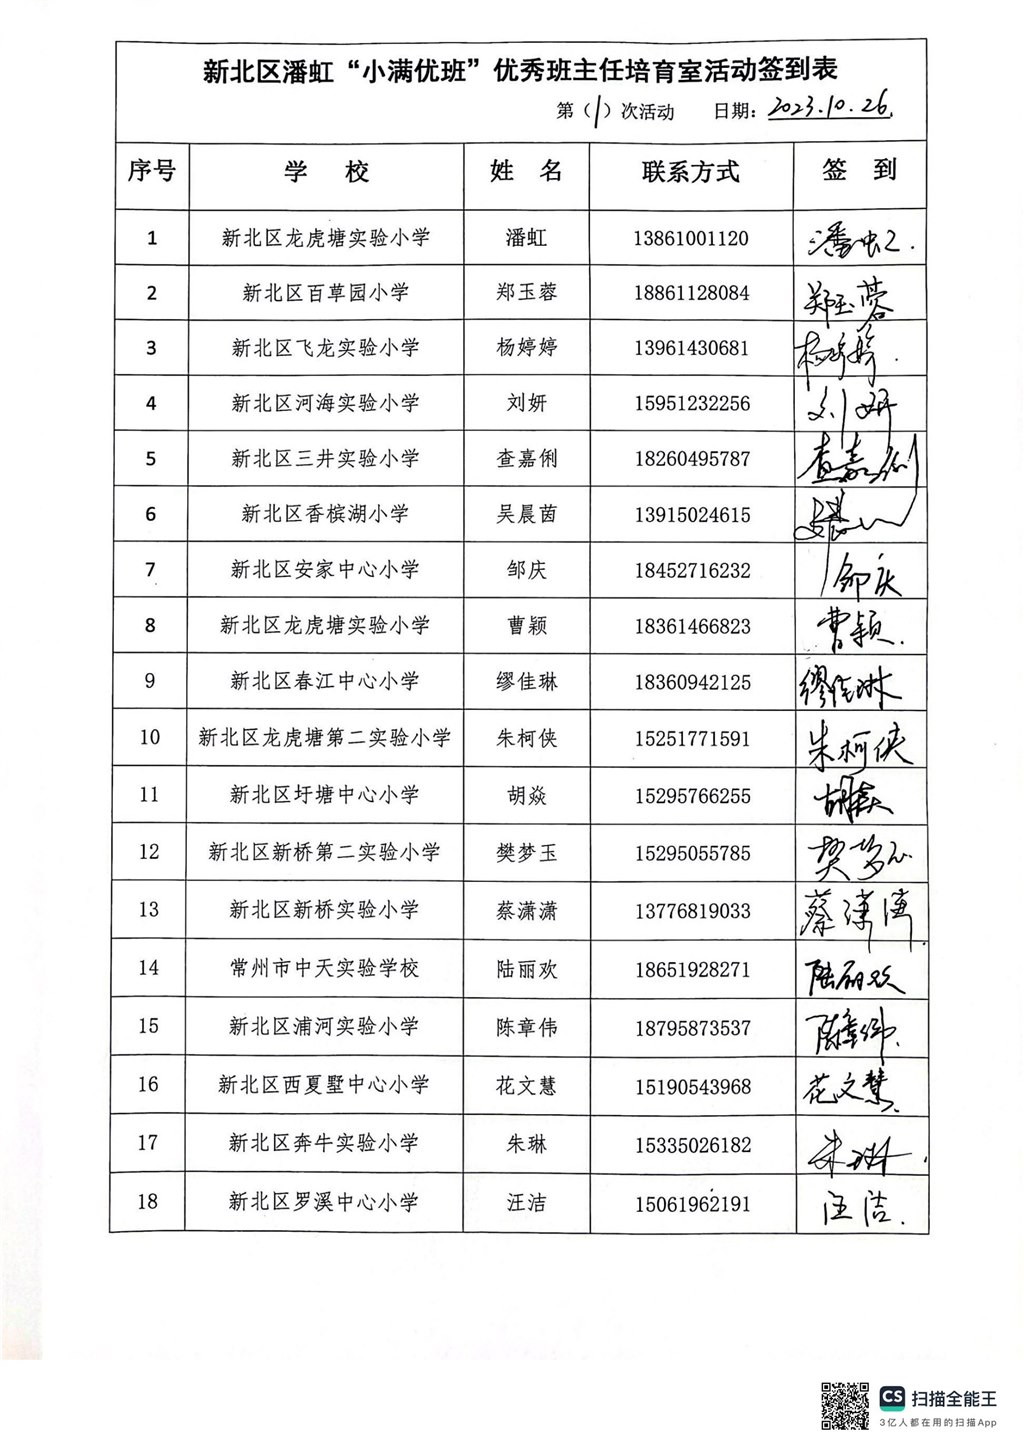 新北区潘虹“小满优班”优秀班主任培育室活动签到表
第（1）次活动 日期：2023.10.26.
序号 学 校 姓 名 联系方式 签 到
1 新北区龙虎塘实验小学 潘虹 13861001120 潘虹.
2 新北区百草园小学 郑玉蓉 18861128084 郑玉蓉
3 新北区飞龙实验小学 杨婷婷 13961430681 杨婷婷.
4 新北区河海实验小学 刘妍 15951232256 刘妍
5 新北区三井实验小学 查嘉俐 18260495787 查嘉俐
6 新北区香槟湖小学 吴晨茵 13915024615
7 新北区安家中心小学 邹庆 18452716232 邹庆
8 新北区龙虎塘实验小学 曹颖 18361466823 曹颖.
9 新北区春江中心小学 缪佳琳 18360942125 缪佳琳
10 新北区龙虎塘第二实验小学 朱柯侠 15251771591 朱柯侠
11 新北区圩塘中心小学 胡焱 15295766255 胡焱
12 新北区新桥第二实验小学 樊梦玉 15295055785 樊梦玉
13 新北区新桥实验小学 蔡潇潇 13776819033 蔡潇潇.
14 常州市中天实验学校 陆丽欢 18651928271 陆丽欢
15 新北区浦河实验小学 陈章伟 18795873537 陈章伟.
16 新北区西夏墅中心小学 花文慧 15190543968 花文慧.
17 新北区奔牛实验小学 朱琳 15335026182 朱琳.
18 新北区罗溪中心小学 汪洁 15061962191 汪洁.
CS 扫描全能王
3亿人都在用的扫描App